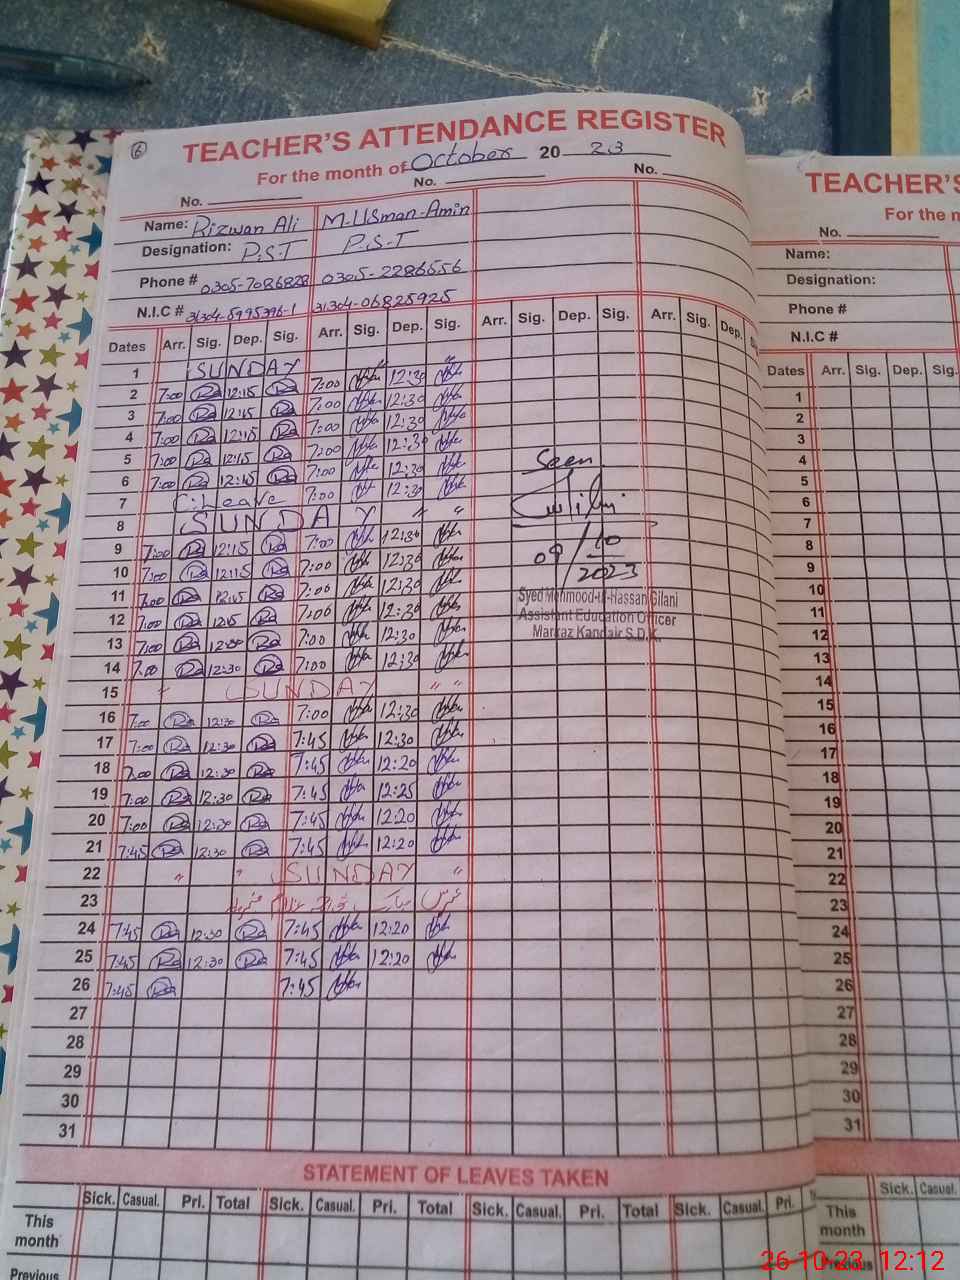 6
TEACHER'S ATTENDANCE REGISTER
For the month of October 20 23
No. No. No.
Name: Rizwan Ali M. Usman Amin
Designation: P.S.T P.S.T
Phone # 0305-7086828 0305-2286556
N.I.C # 31304-5995396-1 31304-06825925
Dates Arr. Sig. Dep. Sig. Arr. Sig. Dep. Sig. Arr. Sig. Dep. Sig. Arr. Sig. Dep.
1 SUNDAY " "
2 7:00 12:15 7:00 12:30
3 7:00 12:15 7:00 12:30
4 7:00 12:15 7:00 12:30
5 7:00 12:15 7:00 12:30
6 7:00 12:15 7:00 12:30
7 C.Leave 7:00 12:30
8 SUNDAY " "
9 7:00 12:15 7:00 12:30
10 7:00 12:15 7:00 12:30
11 7:00 12:15 7:00 12:30
12 7:00 12:15 7:00 12:30
13 7:00 12:30 7:00 12:30
14 7:00 12:30 7:00 12:30
15 " SUNDAY " "
16 7:00 12:30 7:00 12:30
17 7:00 12:30 7:45 12:30
18 7:00 12:30 7:45 12:20
19 7:00 12:30 7:45 12:25
20 7:00 12:30 7:45 12:20
21 7:45 12:30 7:45 12:20
22 " " SUNDAY "
23
24 7:45 12:30 7:45 12:20
25 7:45 12:30 7:45 12:20
26 7:45 7:45
27
28
29
30
31
Seen
09/10/2023
Syed Mehmood-ul-Hassan Gilani
Assistant Education Officer
Markaz Kandair S.D.K.
STATEMENT OF LEAVES TAKEN
Sick. Casual. Pri. Total Sick. Casual. Pri. Total Sick. Casual. Pri. Total Sick. Casual. Pri.
This month
Previous
TEACHER'S
For the m
No.
Name:
Designation:
Phone #
N.I.C #
Dates Arr. Sig. Dep. Sig.
1
2
3
4
5
6
7
8
9
10
11
12
13
14
15
16
17
18
19
20
21
22
23
24
25
26
27
28
29
30
31
Sick. Casual.
This month
Previous
26-10-23 12:12